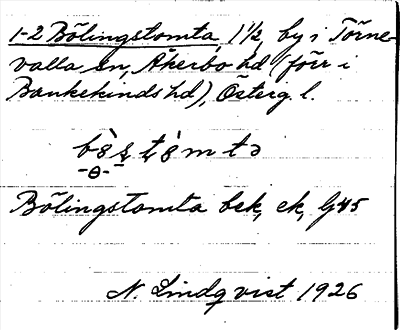 1-2 Bölingstomta, 1 1/2, by i Törne-
valla sn, Åkerbo hd (förr i
Bankekinds hd), Österg. l.
Bölingstomta bek, ek, G45
N. Lindqvist 1926